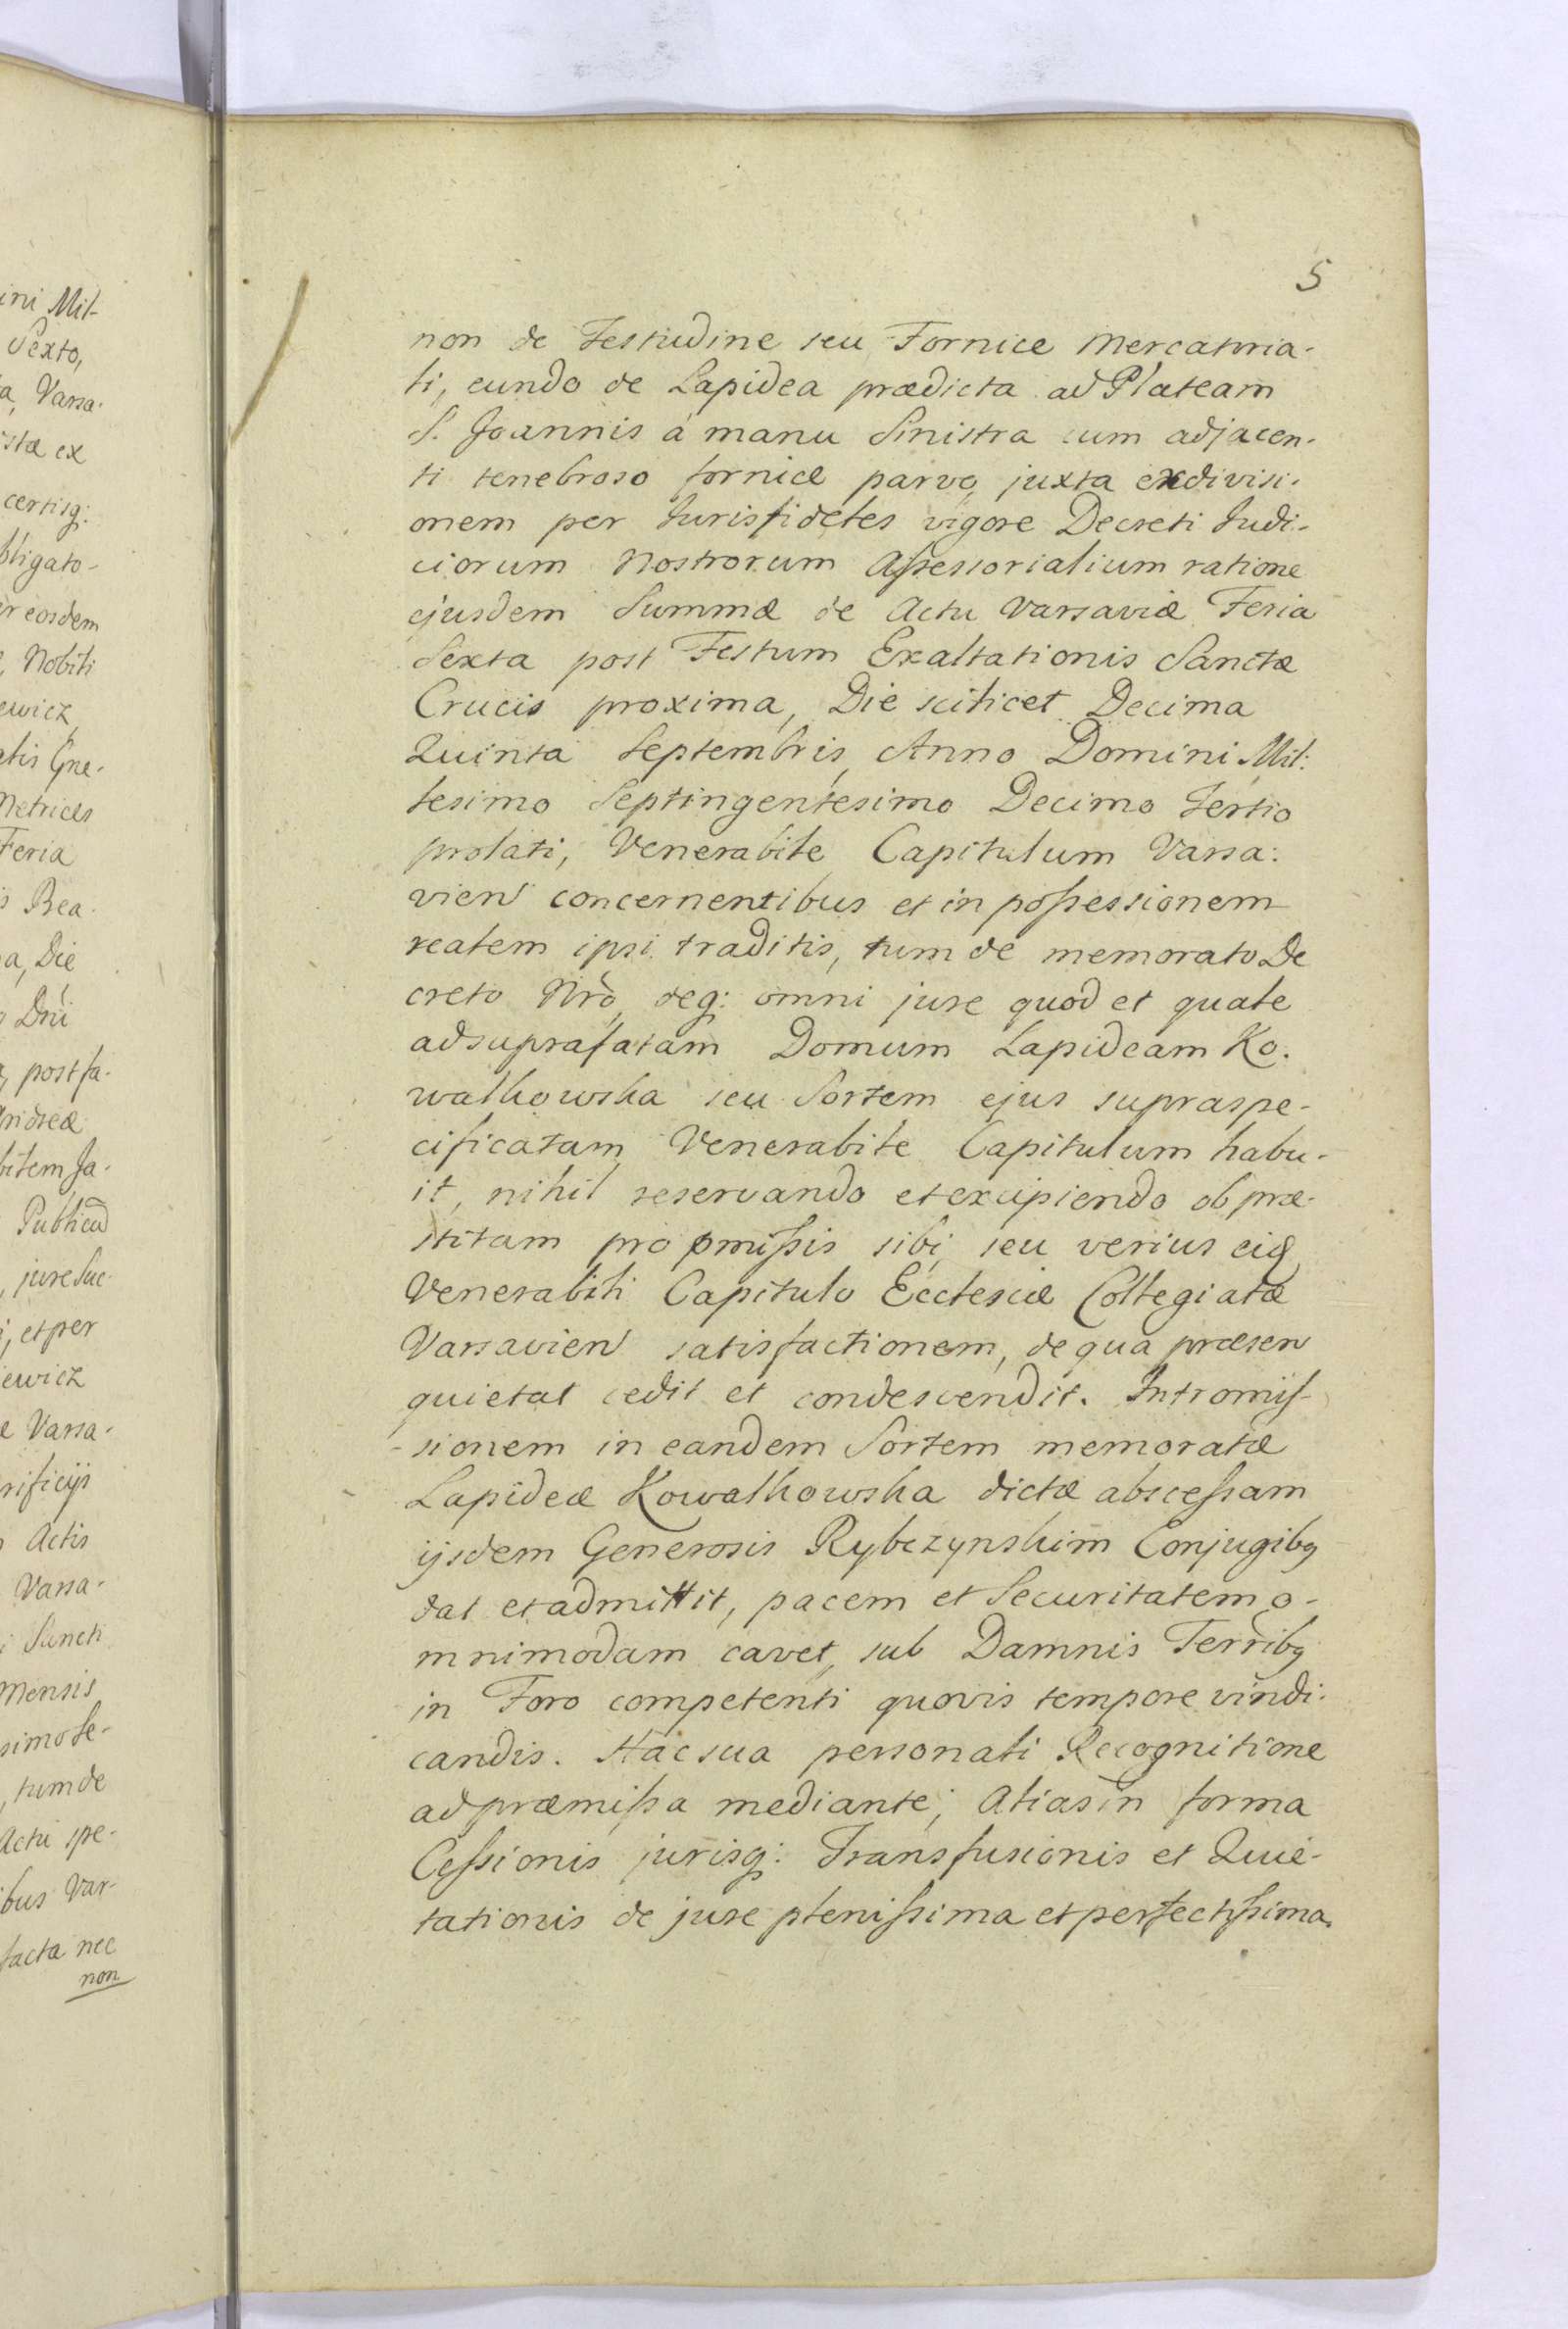 5
non de Testudine seu Fornice Mercatoria-
li, eundo de Lapidea prædicta ad Plateam
S. Joannis á manu Sinistra cum adjacen-
ti tenebroso fornice parvo, juxta exdivisi-
onem per Jurisfideles vigore Decreti Judi-
ciorum Nostrorum Assessorialium ratione
ejusdem Summæ de Actu Varsaviæ Feria
Sexta post Festum Exaltationis Sanctæ
Crucis proxima, Die scilicet Decima
Quinta Septembris, Anno Domini Mil:
lesimo Septingentesimo Decimo Tertio
prolati, Venerabile Capitulum Varsa:
vien concernentibus et in possessionem
realem ipsi traditis, tum de memorato De
creto Nrô, deq: omni jure quod et quale
ad suprafatam Domum Lapideam Ko.
walkowska seu Sortem ejus supraspe-
cificatam Venerabile Capitulum habu-
it, nihil reservando et excipiendo ob præ-
stitam pro pmissis sibi, seu verius eid
Venerabili Capitulo Ecclesiæ Collegiatæ
Varsavien satisfactionem, de qua præsen
quietat cedit et condescendit. Intromis-
-sionem in eandem Sortem memoratæ
Lapideæ Kowalkowska dictæ abscessam
ijsdem Generosis Rybczynskim Conjugibq
dat et admittit, pacem et Securitatem o-
mnimodam cavet, sub Damnis Terribq
in Foro competenti quovis tempore vindi-
candis. Hac sua personali Recognitione
ad præmissa mediante; Alias in forma
Cessionis jurisq: Transfusionis et Quie-
tationis de jure plenissima et perfectissima.
ini Mil-
Sexto,
a, Varsa-
istæ ex
certisq:
bligato-
eosdem
, Nobili
ewicz,
alis Gne-
Metrices
Feria
s Bea-
a, Die
Dni
, post fa-
Andreæ
bilem Ja-
Publicū
, jure Suc
, et per
iewicz
e Varsa-
rificijs
Actis
Varsa-
i Sancti
Mensis
simo Se-
, tum de
Actu spe-
ibus Var-
facta nec
non